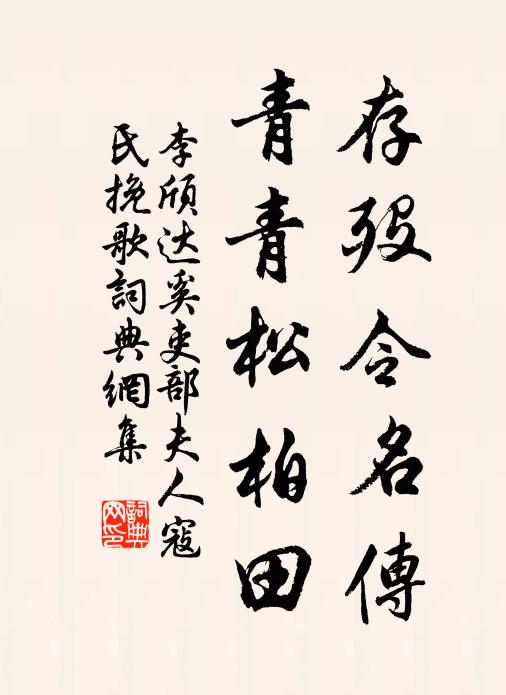 存殁令名傳
青青松柏田
李頎达奚吏部夫人寇
氏挽歌詞典網集
詞典网印